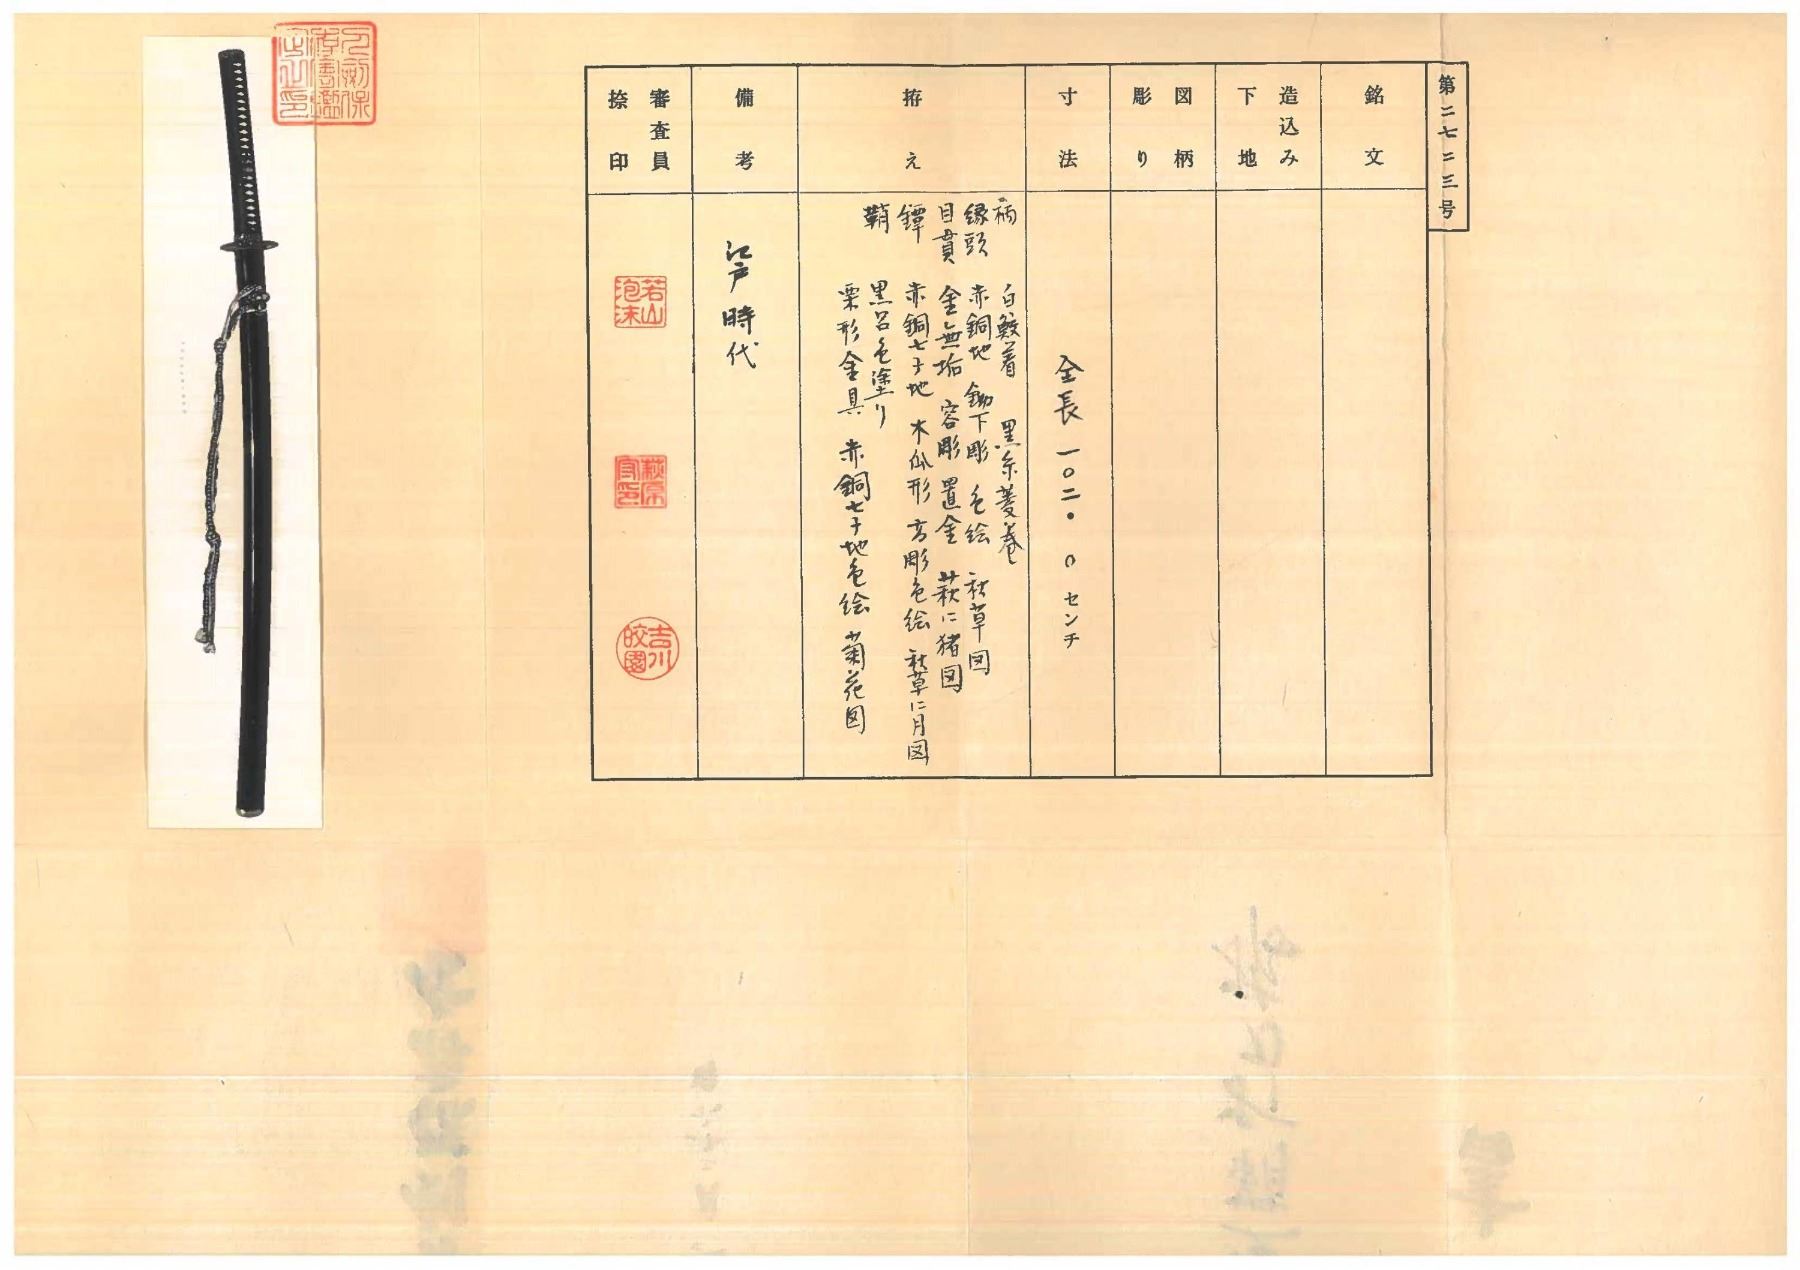 第二七二三号
銘文
造込み
下地
図柄
彫り
寸法
全長 一〇二・〇 センチ
拵え
柄 白鮫着 黒糸菱巻
縁頭 赤銅地 鋤下彫 色絵 秋草図
目貫 金無垢 容彫 置金 萩に猪図
鐔 赤銅七子地 木瓜形 高彫色絵 秋草に月図
鞘 黒呂色塗り
栗形金具 赤銅七子地色絵 菊花図
備考
江戸時代
審査員
捺印
若山
泡沫
萩原
守印
吉川
皎園